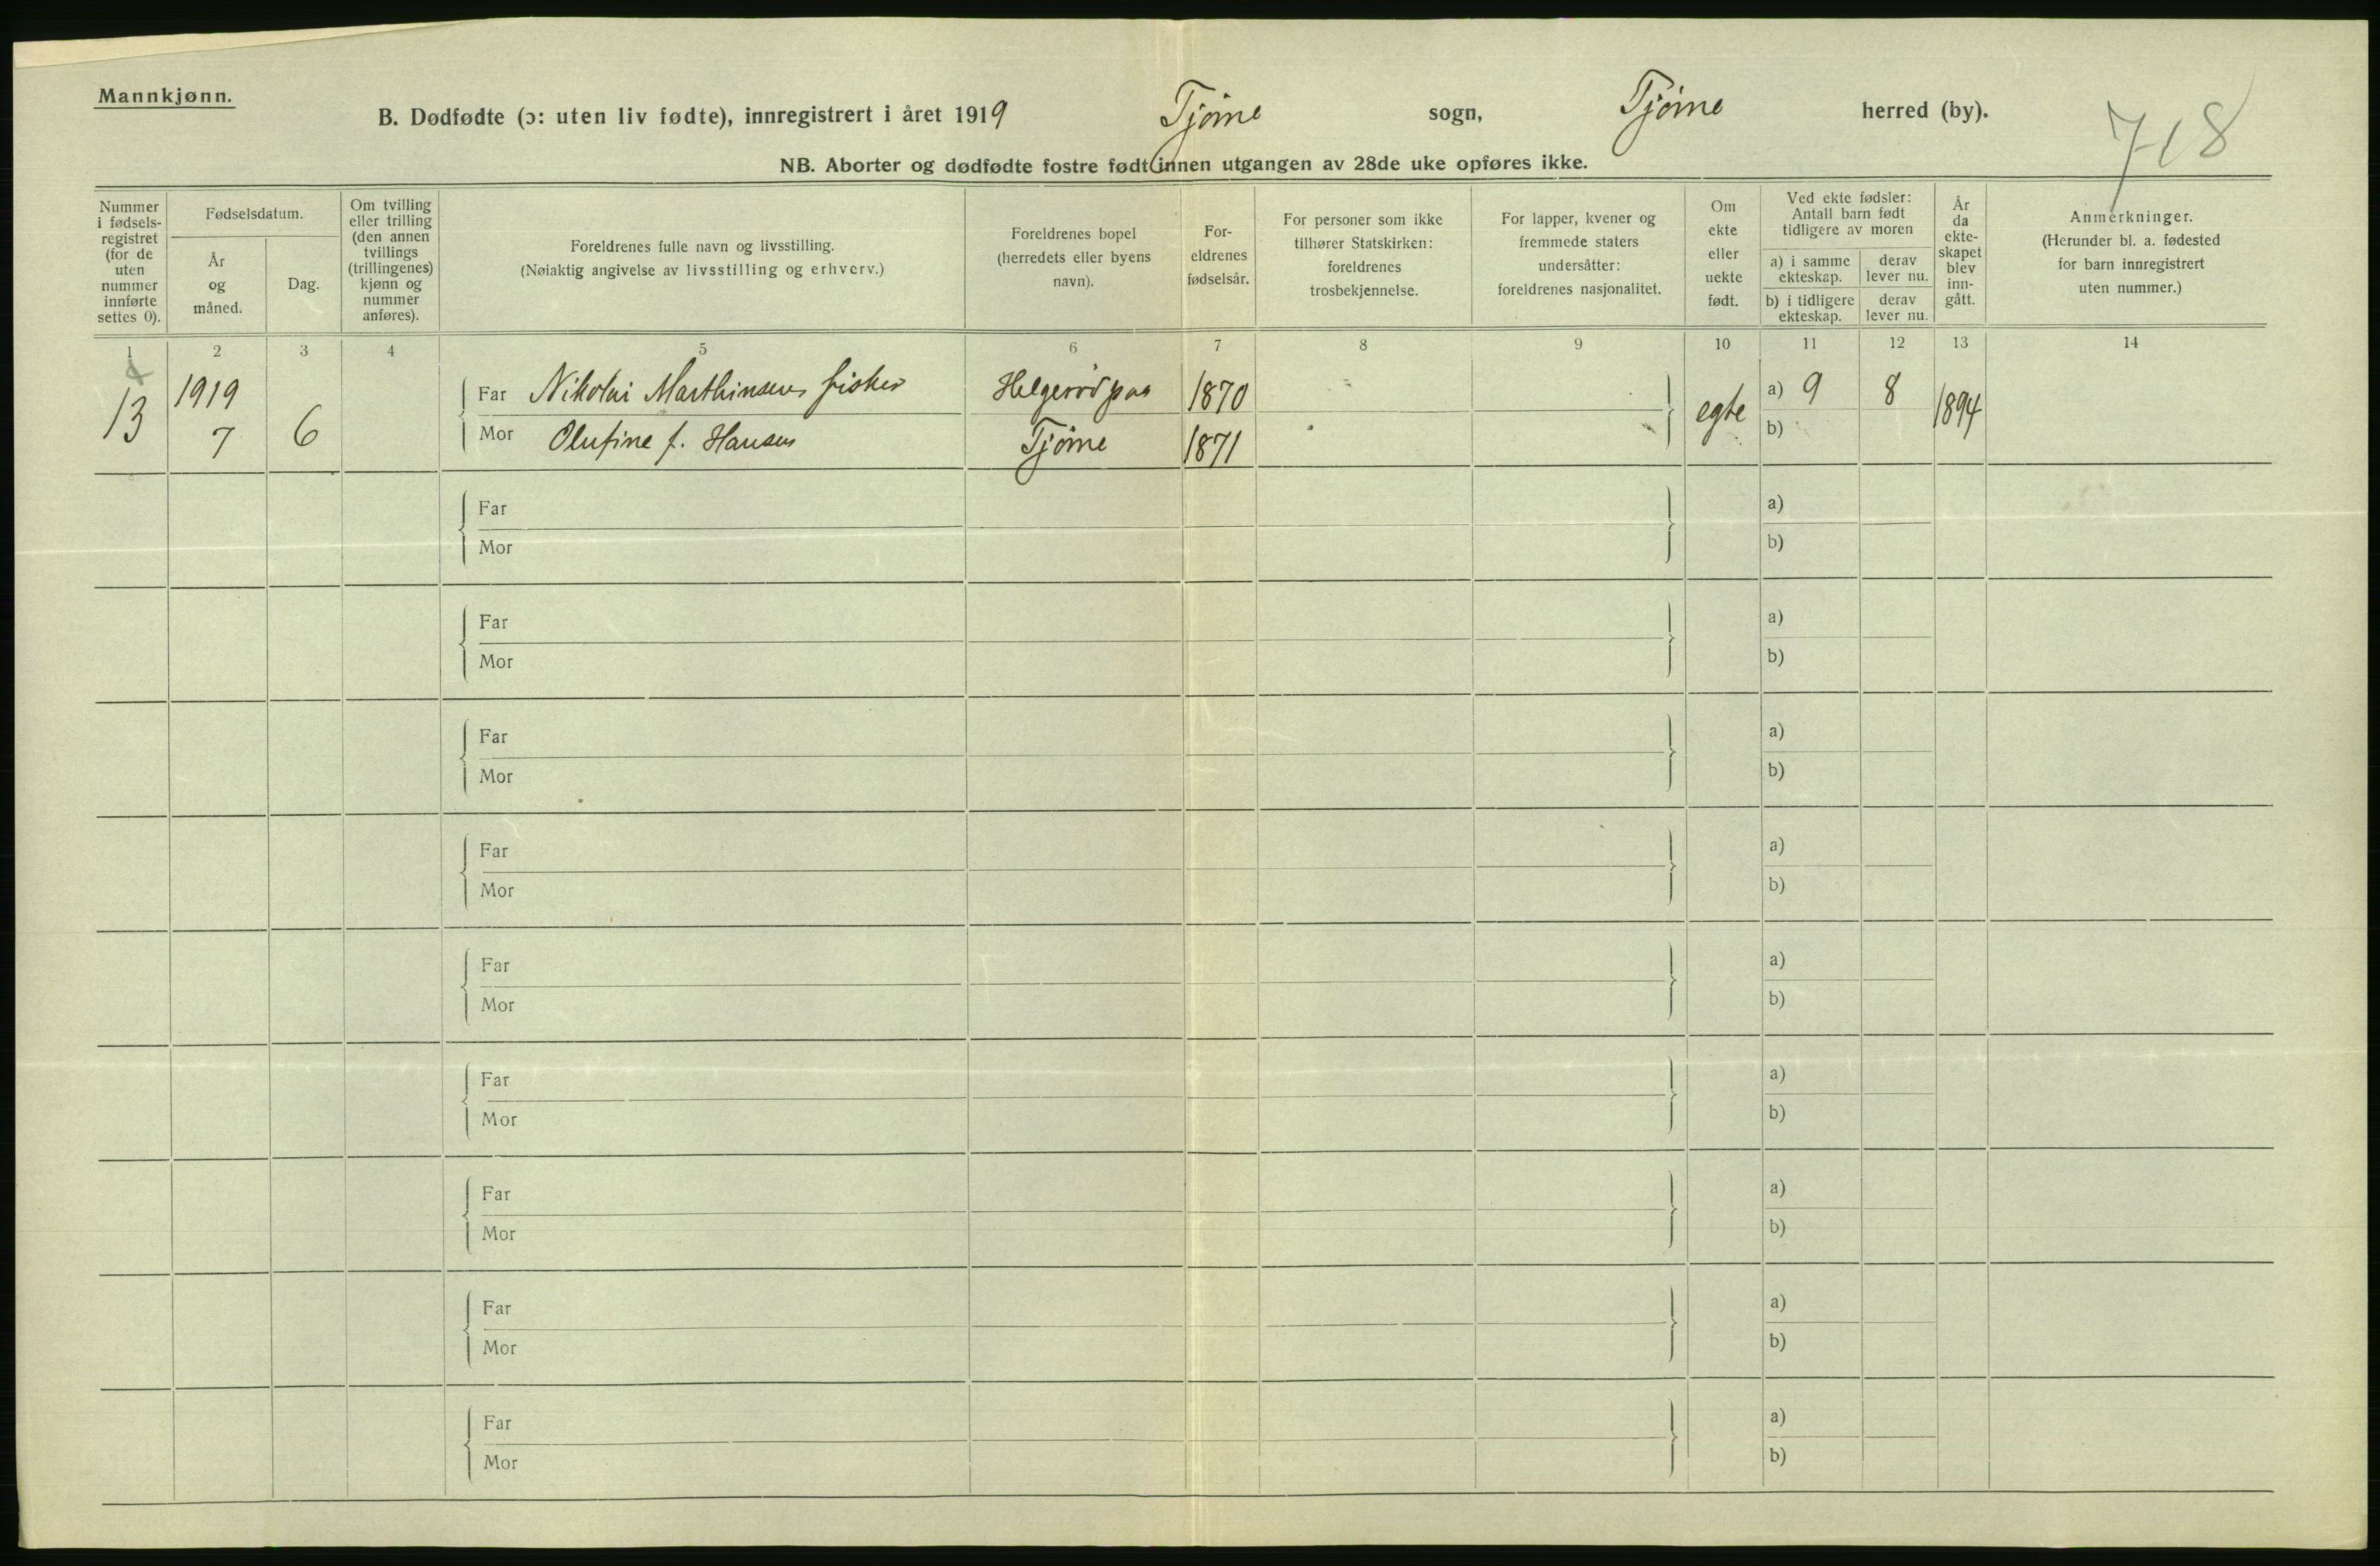 Mannkjønn.
B. Dødfødte (ɔ: uten liv fødte), innregistrert i året 1919 Tjøme sogn, Tjøme herred (by).
718
NB. Aborter og dødfødte fostre født innen utgangen av 28de uke opføres ikke.
Nummer i fødselsregistret (for de uten nummer innførte settes 0).
Fødselsdatum.
År og måned.
Dag.
Om tvilling eller trilling (den annen tvillings (trillingenes) kjønn og nummer anføres).
Foreldrenes fulle navn og livsstilling.
(Nøiaktig angivelse av livsstilling og erhverv.)
Foreldrenes bopel (herredets eller byens navn).
Foreldrenes fødselsår.
For personer som ikke tilhører Statskirken: foreldrenes trosbekjennelse.
For lapper, kvener og fremmede staters undersåtter: foreldrenes nasjonalitet.
Om ekte eller uekte født.
Ved ekte fødsler: Antall barn født tidligere av moren
a) i samme ekteskap.
derav lever nu.
b) i tidligere ekteskap.
derav lever nu.
År da ekteskapet blev inngått.
Anmerkninger.
(Herunder bl. a. fødested for barn innregistrert uten nummer.)
1 2 3 4 5 6 7 8 9 10 11 12 13 14
13 1919 7 6
Far Nikolai Marthinsen fisker Helgerød paa 1870 egte a) 9 8 1894
Mor Olufine f. Hansen Tjøme 1871 b)
Far a)
Mor b)
Far a)
Mor b)
Far a)
Mor b)
Far a)
Mor b)
Far a)
Mor b)
Far a)
Mor b)
Far a)
Mor b)
Far a)
Mor b)
Far a)
Mor b)